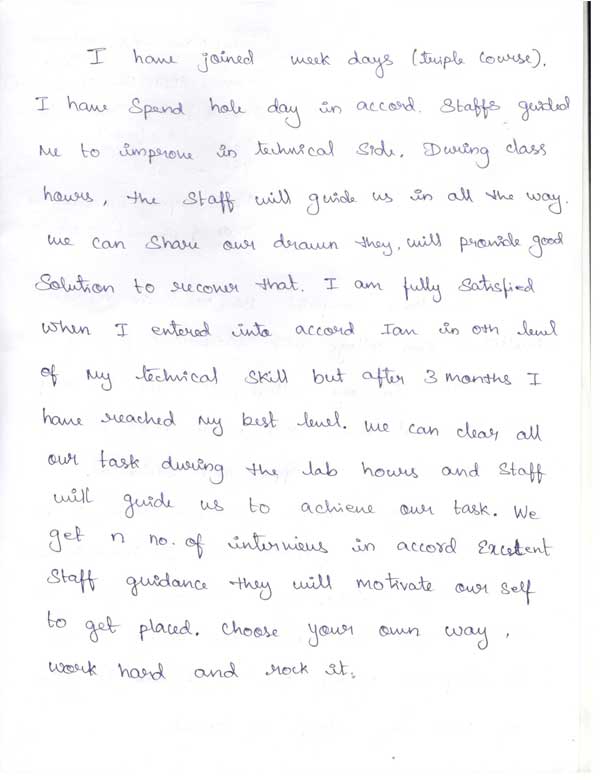 I have joined week days (triple course).
I have Spend hole day in accord. Staffs guided
me to improve in technical Side. During class
hours, the Staff will guide us in all the way.
We can Share our drawn they, will provide good
Solution to recover that. I am fully Satisfied
when I entered into accord Ian in 0th level
of My technical Skill but after 3 months I
have reached my best level. We can clear all
our task during the lab hours and Staff
will guide us to achieve our task. We
get n no. of interviews in accord
Staff guidance they will motivate our self
to get placed. choose your own way,
work hard and rock it.